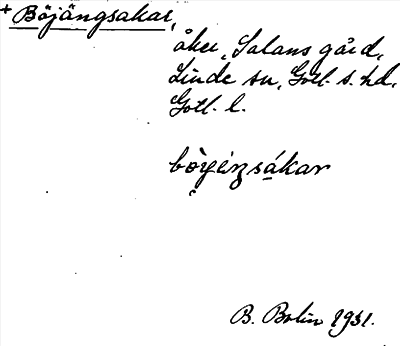 + Böjängsakar,
åker, Salans gård,
Linde sn, Gotl. s. hd.
Gotl. l.
B. Bolin 1931.